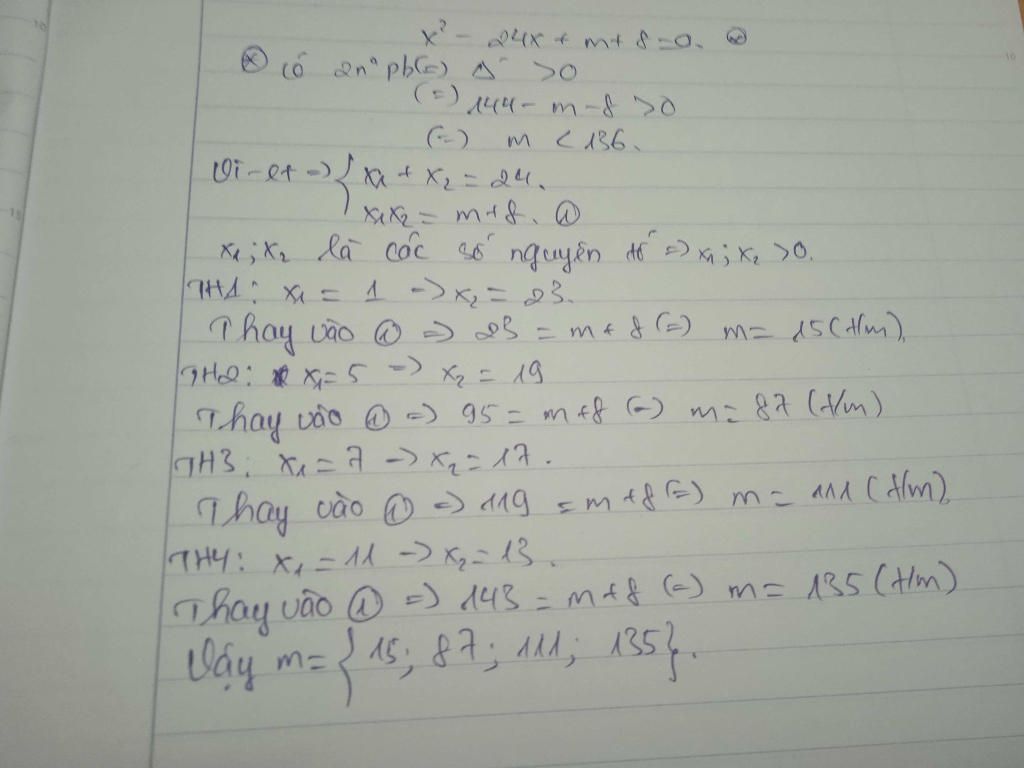 x² - 24x + m + 8 = 0. (*)
(*) có 2n° pb (=) Δ' > 0
(=) 144 - m - 8 > 0
(=) m < 136.
Vi-et => { x₁ + x₂ = 24.
x₁x₂ = m + 8. ①
x₁; x₂ là các số nguyên tố => x₁; x₂ > 0.
TH1: x₁ = 1 -> x₂ = 23.
Thay vào ① => 23 = m + 8 (=) m = 15 (t/m).
TH2: x₁ = 5 => x₂ = 19
Thay vào ① => 95 = m + 8 (=) m = 87 (t/m)
TH3: x₁ = 7 -> x₂ = 17.
Thay vào ① => 119 = m + 8 (=) m = 111 (t/m).
TH4: x₁ = 11 -> x₂ = 13.
Thay vào ① => 143 = m + 8 (=) m = 135 (t/m)
Vậy m = { 15; 87; 111; 135 }.